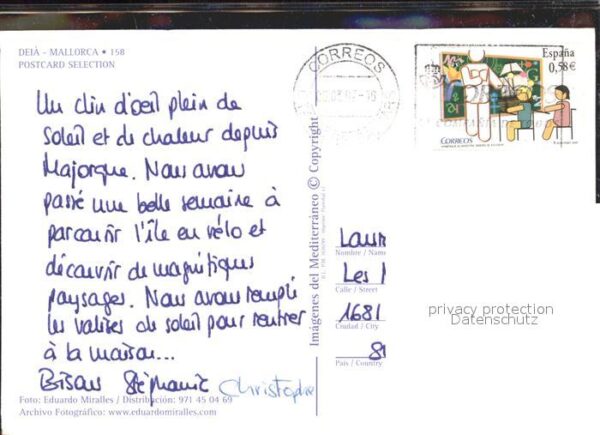 DEIÀ - MALLORCA • 158
POSTCARD SELECTION
Un clin d'oeil plein de
soleil et de chaleur depuis
Majorque. Nous avons
passé une belle semaine à
parcourir l'île en vélo et
découvrir de magnifiques
paysages. Nous avons rempli
les valises de soleil pour rentrer
à la maison...
Bisous Stéphanie Christophe
Foto: Eduardo Miralles / Distribución: 971 45 04 69
Archivo Fotográfico: www.eduardomiralles.com
Imágenes del Mediterráneo © Copyright
CORREOS
España
0,58€
CORREOS
Laur
Nombre / Name
Les
Calle / Street
1681
Ciudad / City
País / Country
privacy protection
Datenschutz